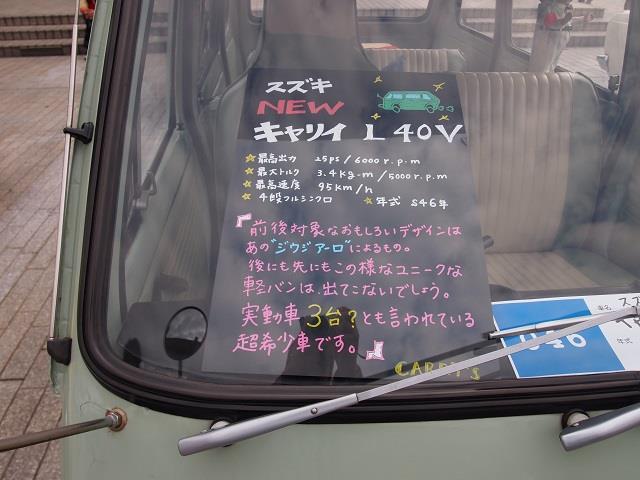 スズキ
NEW
キャリイ L40V
☆最高出力 25ps/6000r.p.m
☆最大トルク 3.4kg-m/5000r.p.m
☆最高速度 95km/h
☆4段フルシンクロ ☆年式 S46年
『前後対象なおもしろいデザインは
あの"ジウジアーロ"によるもの。
後にも先にもこの様なユニークな
軽バンは、出てこないでしょう。
実動車3台?とも言われている
超希少車です。』
CARRY'S
車名 スズ
年式